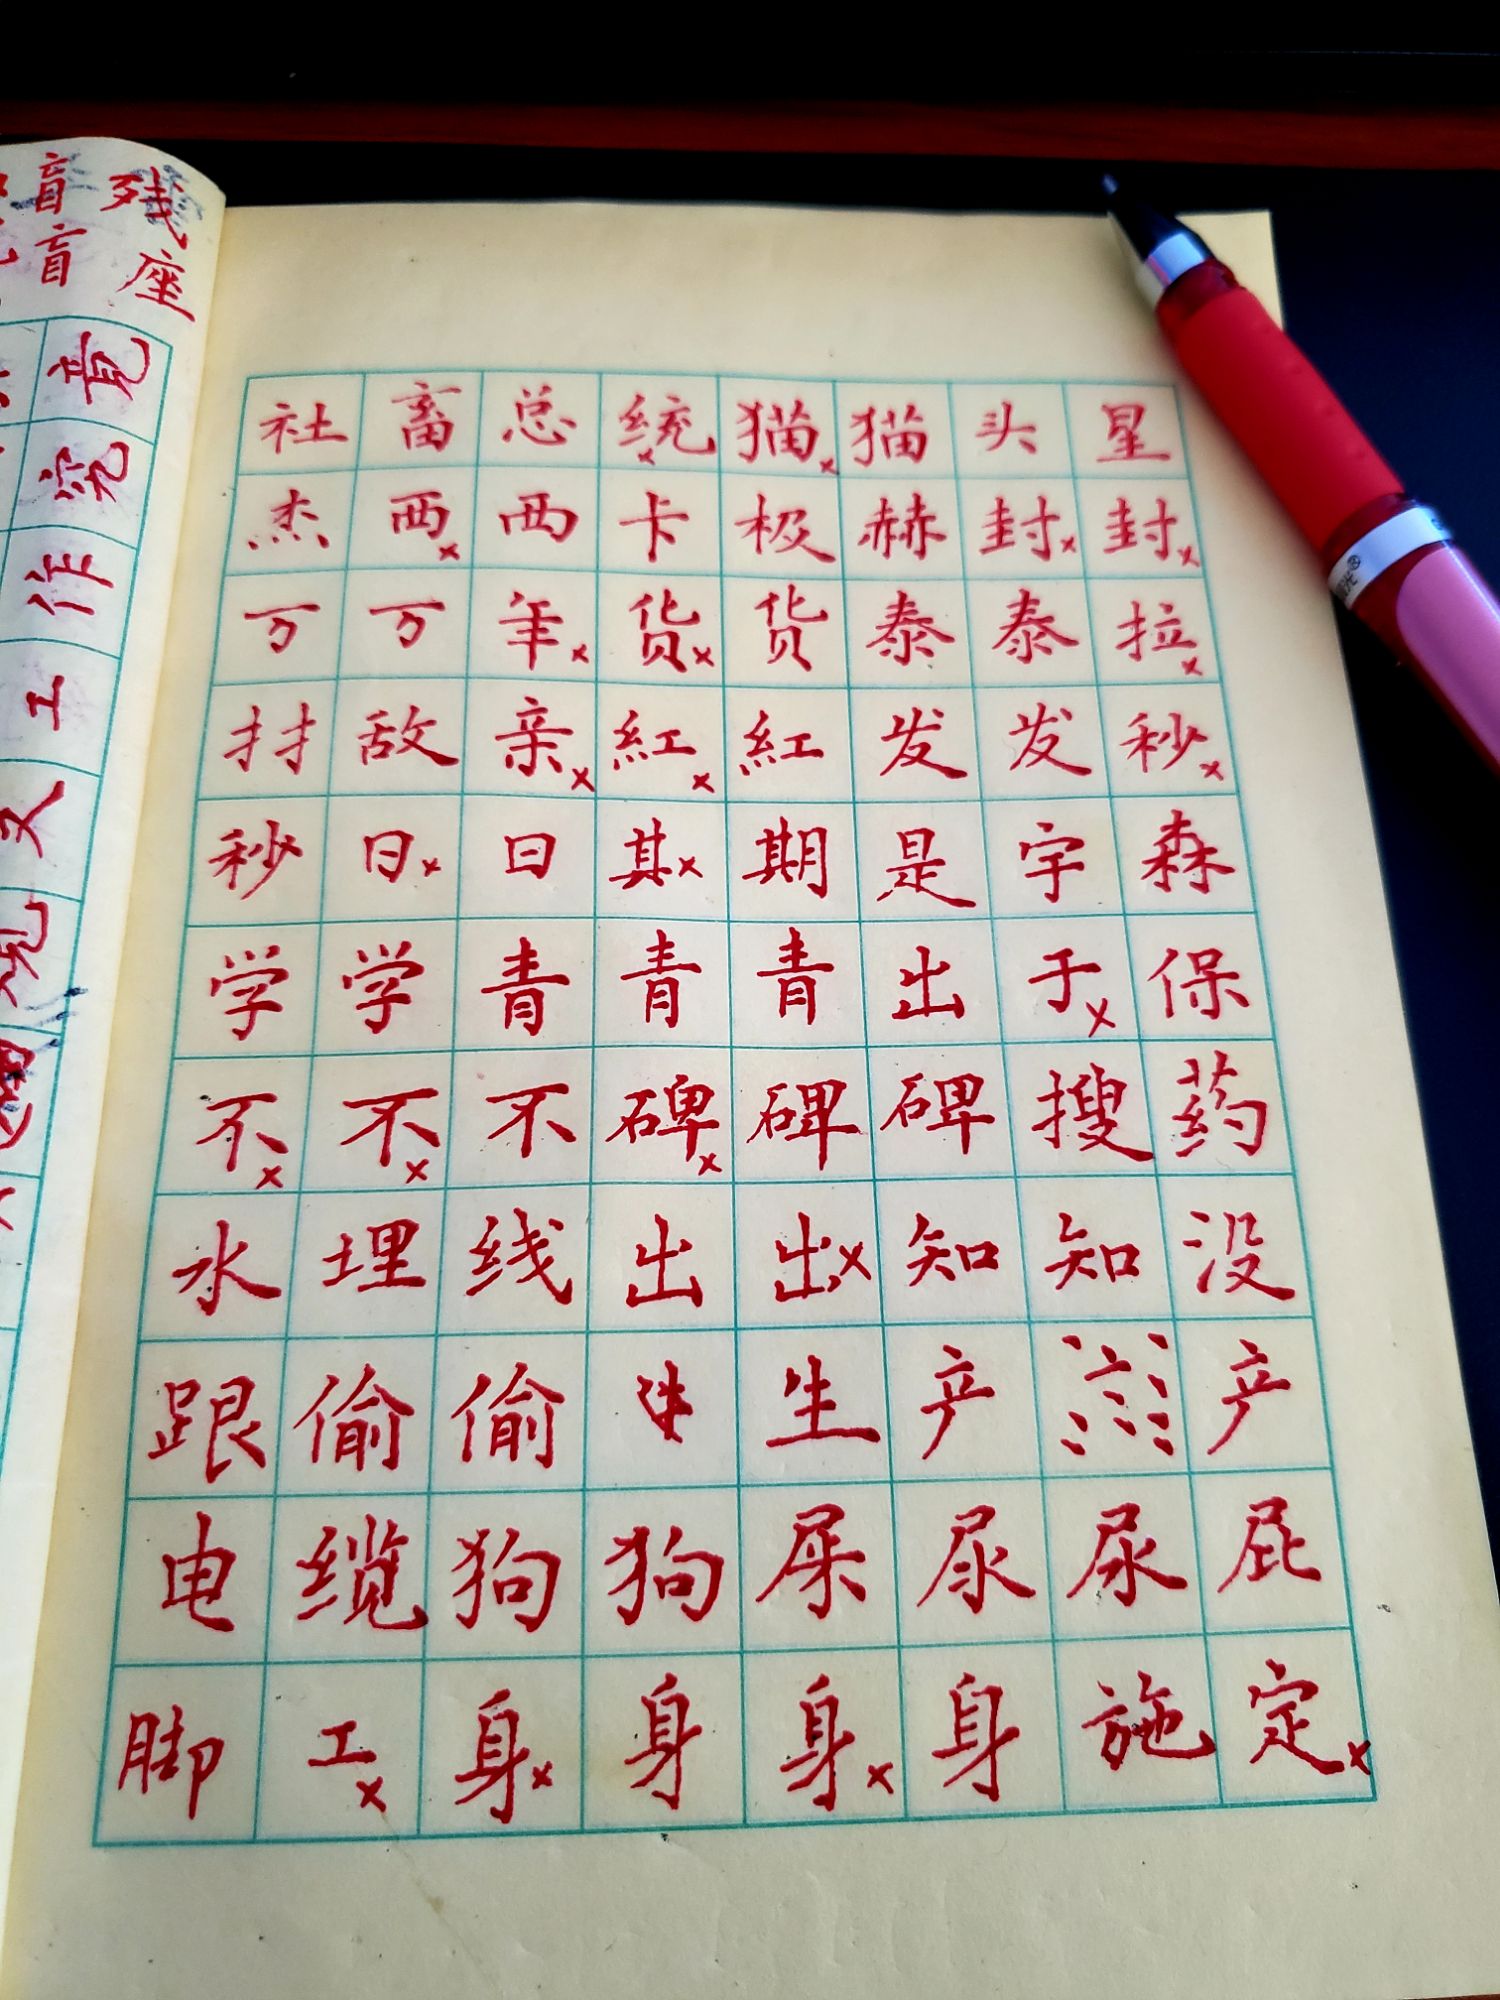 残
盲
盲
座
竟
究
作
工
久
社畜总统猫猫头星
杰西西卡极赫封封
万万年货货泰泰拉
村敌亲紅紅发发秒
秒日日其期是宇森
学学青青青出于保
不不不碑碑碑搜药
水埋线出出知知没
跟偷偷生产产
电缆狗狗屎尿尿屁
脚工身身身身施定